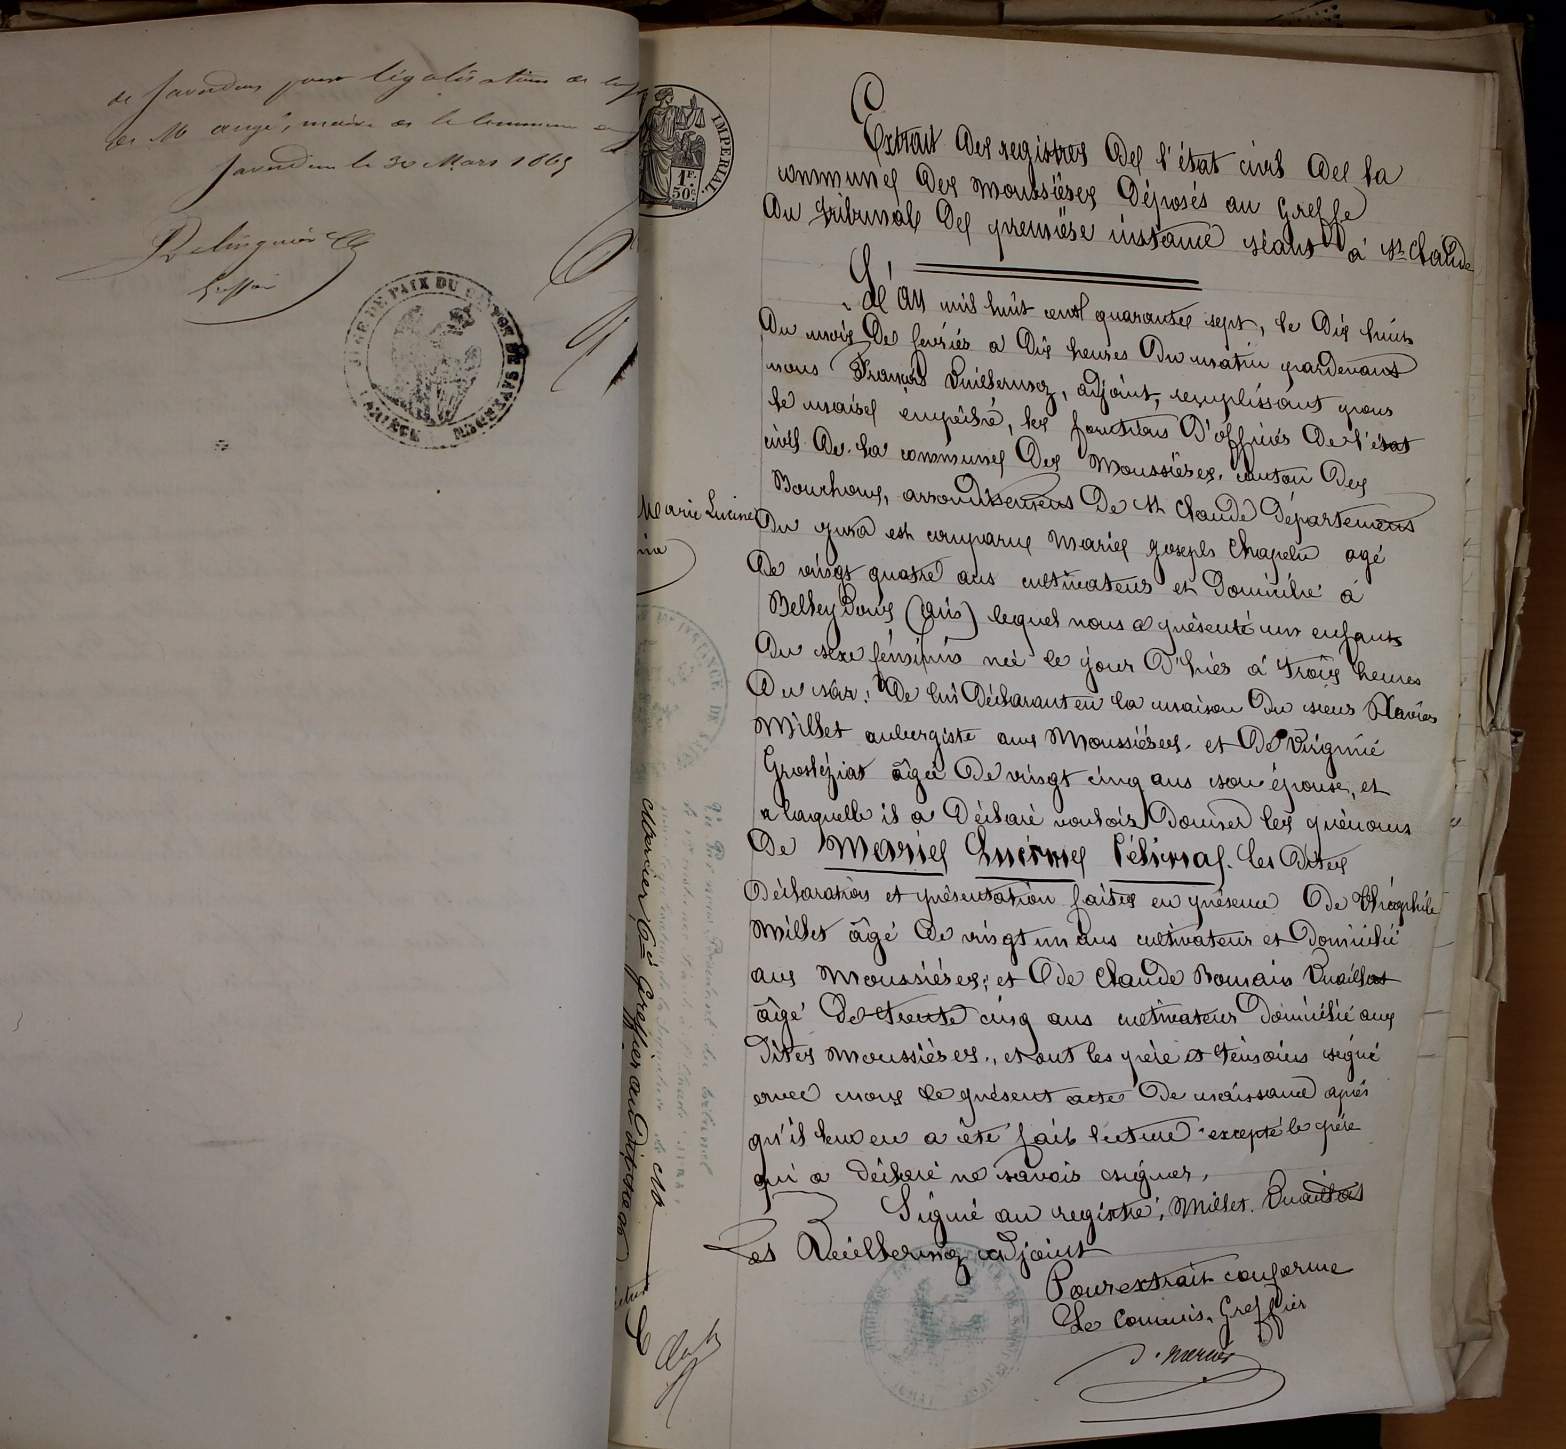 de Saverdun pour légalisation de
de Mr augé, maire de la commune
Saverdun le 30 Mars 1865
JUGE DE PAIX DU CANTON DE SAVERDUN
(ARIÈGE)
IMPERIAL.
1F.
50c.
Extrait des registres de l'état civil de la
commune des moussières déposés au greffe
du tribunal de première instance séant à St Claude
L'an mil huit cent quarante sept, le dix huit
du mois de février a dix heures du matin pardevant
nous François Vuillermoz, adjoint, remplissant pour
le maire empêché, les fonctions d'officier de l'état
civil de la commune des Moussières, canton des
Bouchoux, arrondissement de St Claude département
du jura est comparu Marie joseph Chapelu agé
de vingt quatre ans cultivateur et domicilié à
Belleydoux (ain) lequel nous a présenté un enfant
du sexe féminin née le jour d'hier à trois heures
du soir, de lui déclarant en la maison du sieur Xavier
Millet aubergiste aux Moussières et de Virginie
Grosléziat âgée de vingt cinq ans son épouse, et
a laquelle il a déclaré vouloir donner les prénoms
de Marie Lucine Célina. les dites
déclaration et présentation faites en présence de théophile
Millet âgé de vingt un ans cultivateur et domicilié
aux Moussières; et de Claude Romain Vuaillat
âgé de trente cinq ans cultivateur domicilié aux
dites moussières, et ont les père et témoins signé
avec nous le présent acte de naissance après
qu'il leur en a été fait lecture excepté le père
qui a déclaré ne savoir signer,
Signé au registre, Millet. Vuaillat
et Vuillermoz adjoint
Pour extrait conforme
Le Commis. Greffier
J. Mercier
Marie Lucine
Mercier Cis Greffier au dépôt de